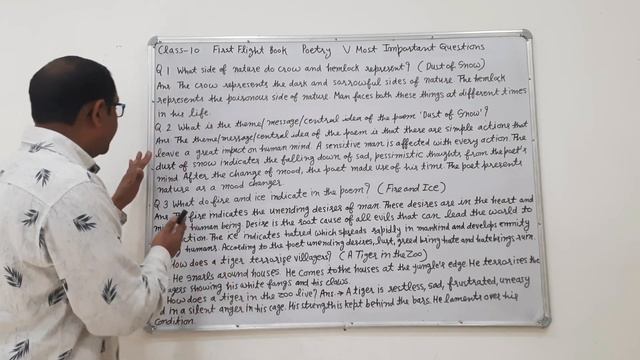 Class-10 First Flight Book Poetry V Most Important Questions
Q 1 What side of nature do crow and hemlock represent? (Dust of Snow)
Ans The crow represents the dark and sorrowful sides of nature. The hemlock
represents the poisonous side of nature. Man faces both these things at different times
in his life.
Q. 2 What is the theme/message/central idea of the poem 'Dust of Snow'?
Ans The theme/message/central idea of the poem is that there are simple actions that
leave a great impact on human mind. A sensitive man is affected with every action. The
dust of snow indicates the falling down of sad, pessimistic thoughts from the poet's
mind. After the change of mood, the poet made use of his time. The poet presents
nature as a mood changer.
Q 3 What do fire and ice indicate in the poem? (Fire and Ice)
Ans The fire indicates the unending desires of man. These desires are in the heart and
human being. Desire is the root cause of all evils that can lead the world to
The ice indicates hatred which spreads rapidly in mankind and develops enmity
humans. According to the poet unending desires, lust, greed bring hate and hate brings ruin.
How does a tiger terrorise villagers? (A Tiger in the Zoo)
He snarls around houses. He comes to the houses at the jungle's edge. He terrorises the
showing his white fangs and his claws.
How does a tiger in the zoo live? Ans → A tiger is restless, sad, frustrated, uneasy
in a silent anger in his cage. His strength is kept behind the bars. He laments over his
condition.